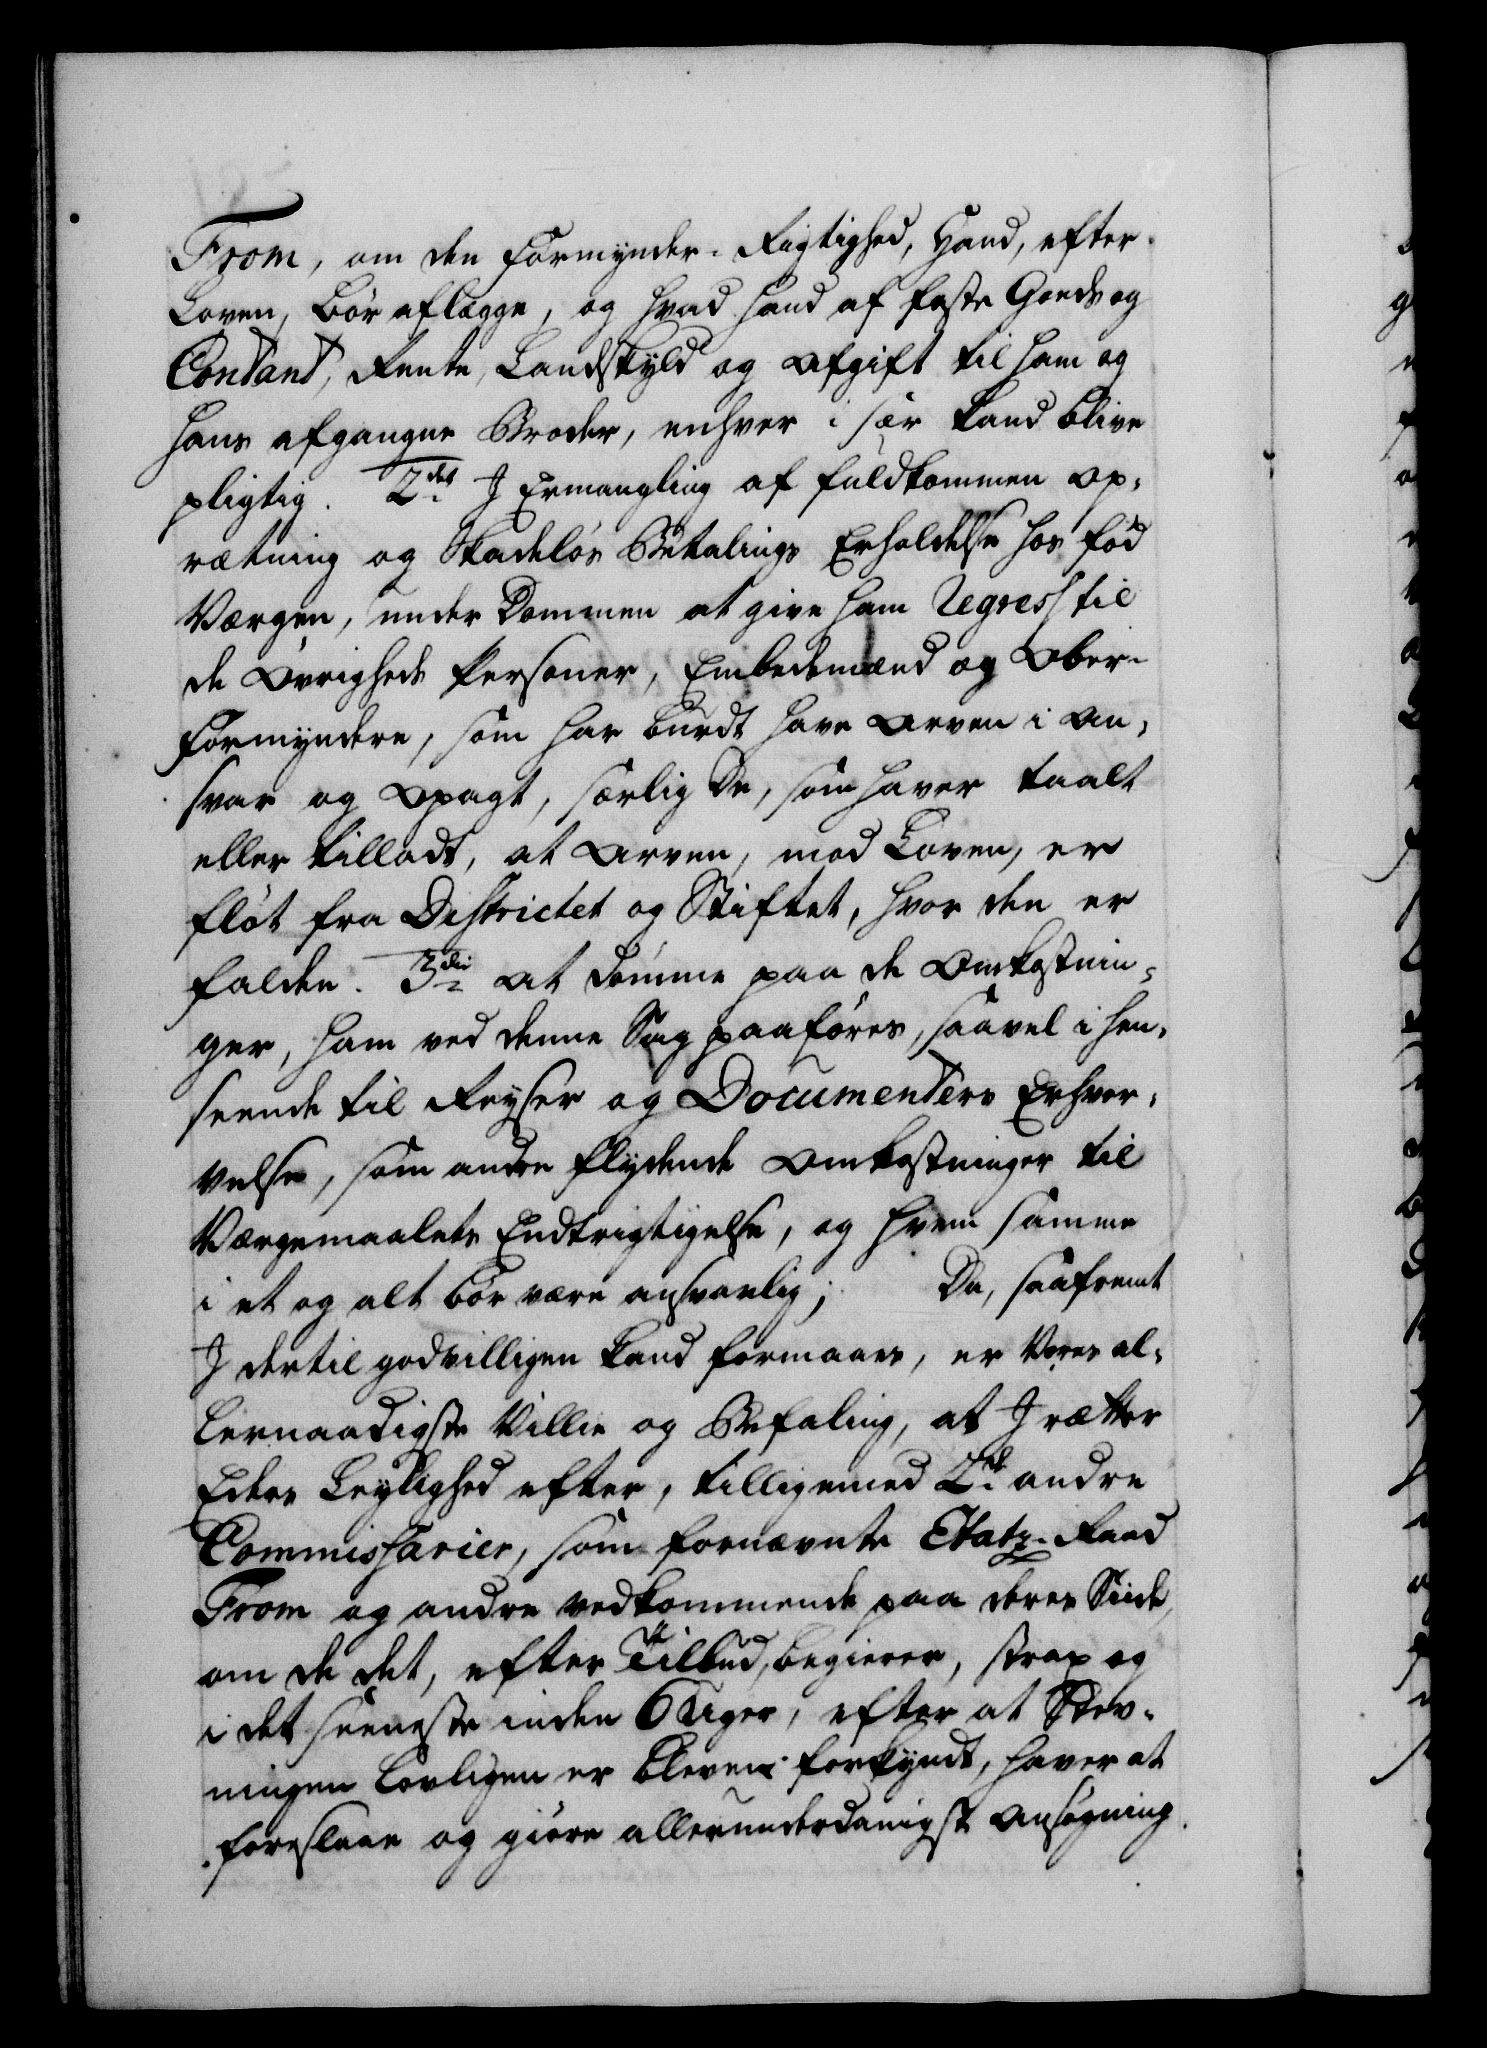 From, om den Formynder-Rigtighed, Hand, efter
Loven, bör aflægge, og hvad hand af faste Goeds og
Contant, Rente, Landskyld og Afgift til ham og
hans afgangne Broder, enhver i sær kand blive
pligtig. 2det I Ermangling af fuldkommen Op-
rætning og Skadelös Betalings Erholdelse hos fød
Værgen, under Dommen at give ham Regress til
de Øvrigheds Personer, Embedsmænd og Ober-
formyndere, som har burdt have Arven i An-
svar og Opagt, særlig De, som haver taalt
eller tilladt, at Arven, mod Loven, er
flöt fra Districtet og Stiftet, hvor den er
falden. 3die At dömme paa de Omkostnin-
ger, ham ved denne Sag paaføres, saavel i hen-
seende til Reyser og Documenters Erhver-
velse, som andre flydende Omkostninger til
Værgemaalets Endtrigtigelse, og hvem samme
i et og alt bör være ansvarlig; Da, saafremt
I dertil godvilligen kand formaaes, er Vores al-
lernaadigste Villie og Befaling, at I rætter
Eders Leylighed efter, tilligemed 2de andre
Commissarier, som fornævnte Etatz-Raad
From og andre vedkommende paa deres Siide,
om de det, efter Tilbud, begierer, strax og
i det seeneste inden 6 Uger, efter at Stev-
ningen lovligen er bleven forkyndt, haver at
foreslaae og giöre allerunderdanigst Ansøgning.